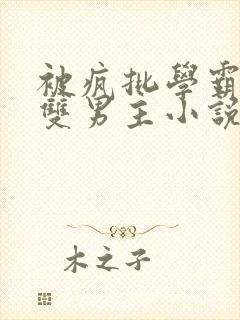 被疯批學霸
雙男主小說
木之子